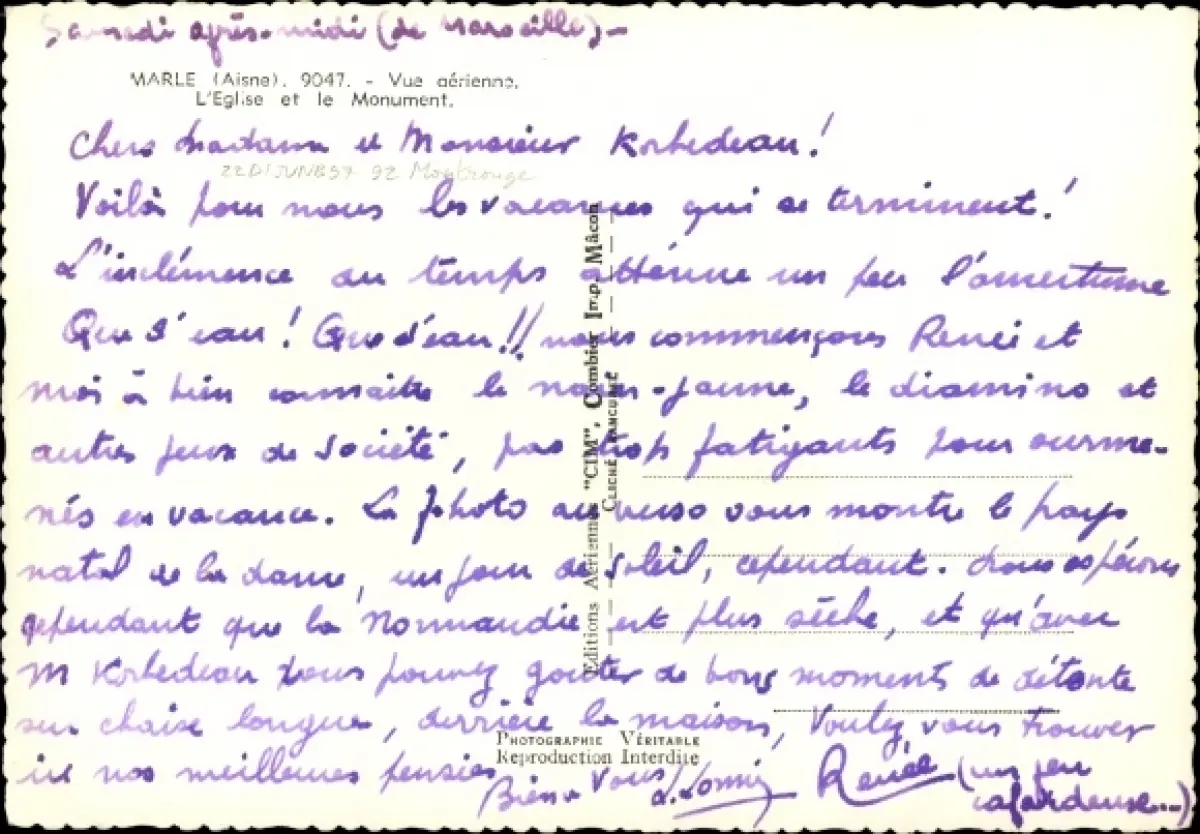 Samedi après-midi (de Marseille) -
MARLE (Aisne). 9047. - Vue aérienne.
L'Eglise et le Monument.
Chers Madame et Monsieur Korbedeau!
92 Montrouge
Voilà pour nous les vacances qui se terminent!
L'inclémence du temps atténue un peu l'amertume
Que d'eau! Que d'eau!! nous commençons Renée et
moi à bien connaître le nain-jaune, le diamino et
autres jeux de société, pas trop fatigants pour surme-
nés en vacance. La photo au verso vous montre le pays
natal de la dame, un jour de soleil, cependant. Nous espérons
cependant que la Normandie est plus sèche, et qu'avec
M Korbedeau vous pouvez goûter de bons moments de détente
sur chaise longue, derrière la maison, Voulez vous trouver
ici nos meilleures pensées
Bien à vous
Renée (un peu
cafardeuse...)
Editions Aériennes "CIM", Combier Imp. Mâcon
CLICHÉ
PHOTOGRAPHIE VÉRITABLE
Reproduction Interdite